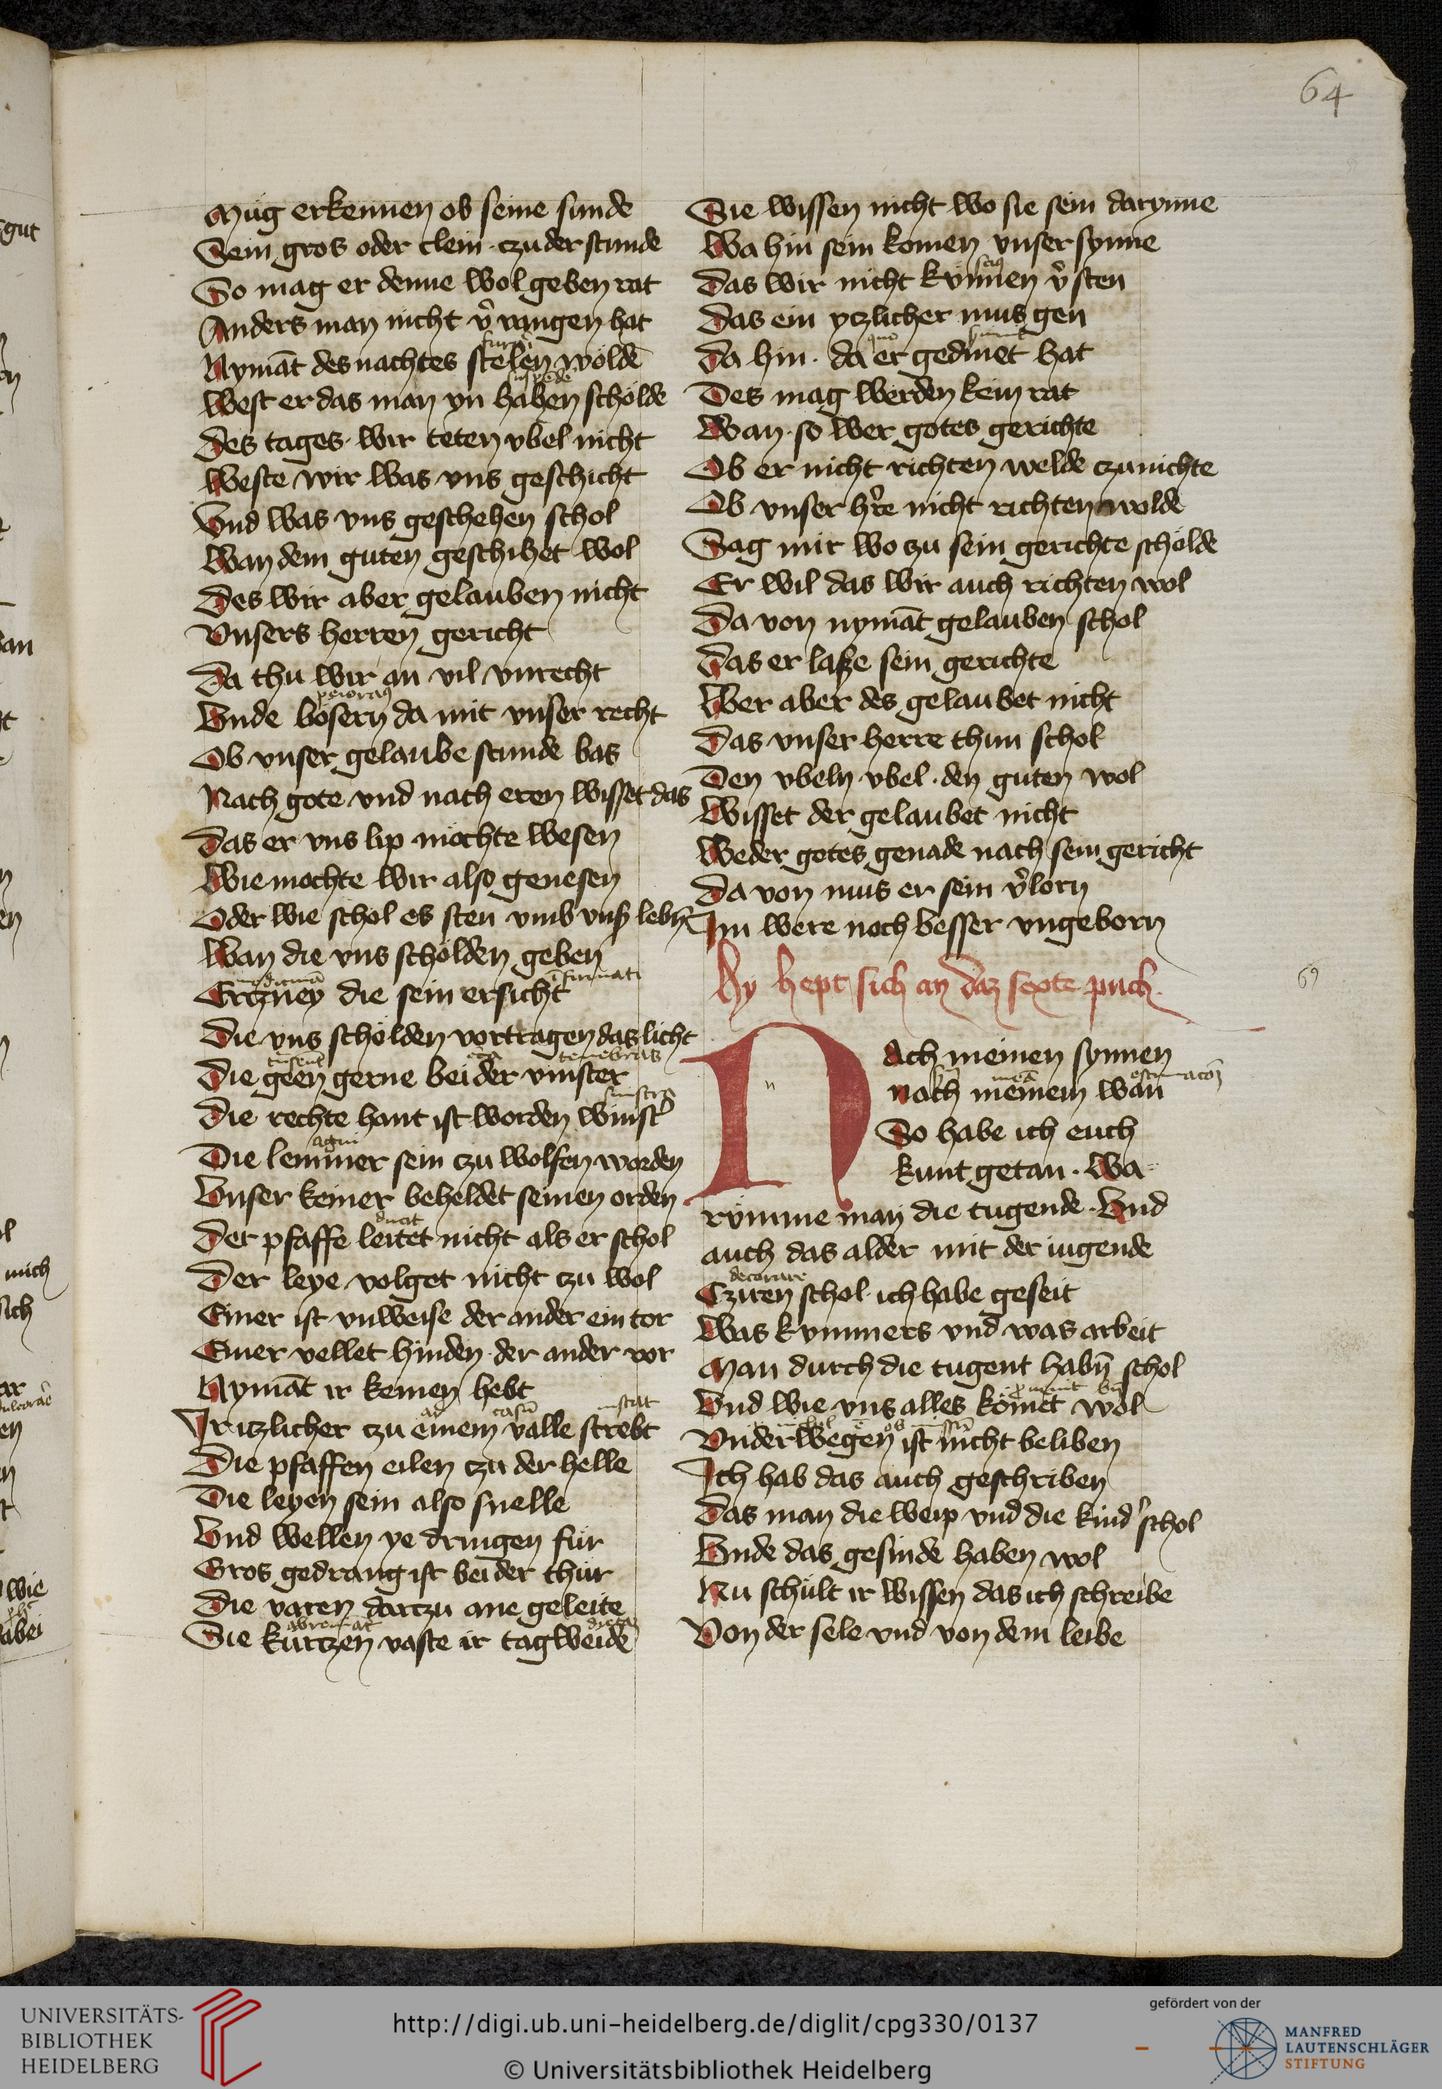 64
Mug erkennen ob seine sunde
Sein gros oder clein · czu der stunde
So mag er denne wol geben rat
Anders man nicht v̉vangen hat
Nymāt des nachtes stelen wolde
West er das man yn hahen scholde
Des tages · wir teten vbel nicht
Weste wir was vns geschicht
Vnd was vns geschehen schol
Wan dem guten geschihet wol
Des wir aber gelauben nicht
Vnsers herren gericht
Da thu wir an vil vnrecht
peioram9
Vnde bosern da mit vnser recht
Ob vnser gelaube stunde bas
Nach gote vnd nach eren wisset das
Das er vns lip mochte wesen
Wie mochte wir also genesen
Oder wie schol es sten vmb vnß lebn̄
Wan die vns scholden geben
Erczney die sein ersicht
Die vns scholden vortragen das licht
tenebras
Die geen gerne bei der vinster
Die rechte hant ist worden winst̉
agni
Die lemmer sein czu wolfen worden
Vnser keiner beheldet seinen orden
ducit
Der pfaffe leitet nicht als er schol
Der leye volget nicht czu wol
Einer ist vnweise der ander ein tor
Einer vellet hinden der ander vor
Nymāt ir keinen hebt
ad casū instat
Iriczlicher czu einem valle strebt
Die pfaffen eilen czu der helle
Die leyen sein also snelle
Vnd wellen ye dringen fur
Gros gedrang ist bei der thur
Die varen darczu ane geleite
Die kurtzen vaste ir tagweide
Sie wissen nicht wo sie sein darynne
Wa hin sein komen vnser synne
Das wir nicht kvnnen v̉sten
Das ein yczlicher mus gen
Da hin · da er gedinet hat
Des mag werden kein rat
Wan · so wer gotes gerichte
Ob er nicht richten welde czu nichte
Ob vnser hr̉e nicht richten wolde
Sag mir wo zu sein gerichte scholde
Er wil das wir auch richten wol
Da von nymāt gelauben schol
Das er laße sein gerichte
Wer aber des gelaubet nicht
Das vnser herre thun schol
Den vbeln vbel · den guten wol
Wisset der gelaubet nicht
Weder gotes genade nach sein gericht
Da von mus er sein v̉lorn
Im were noch besser vngeborn
Hy hept sich an daz sexte puch
69
Nach meinen synnen
nach meinem wan
So habe ich euch
kunt getan · Wa=
rymme man die tugende · Vnd
auch das alder mit der iugende
decorare
Cziren schol · ich habe geseit
Was kvmmers vnd was arbeit
Man durch die tugent habn̄ schol
Vnd wie vns alles komet wol
Vnderwegen ist nicht beliben
Ich hab das auch geschriben
Das man die weip vnd die kind̉ schol
Vnde das gesinde haben wol
Nu schult ir wissen das ich schreibe
Von der sele vnd von dem leibe
UNIVERSITÄTS-
BIBLIOTHEK
HEIDELBERG
http://digi.ub.uni-heidelberg.de/diglit/cpg330/0137
© Universitätsbibliothek Heidelberg
gefördert von der
MANFRED
LAUTENSCHLÄGER
STIFTUNG